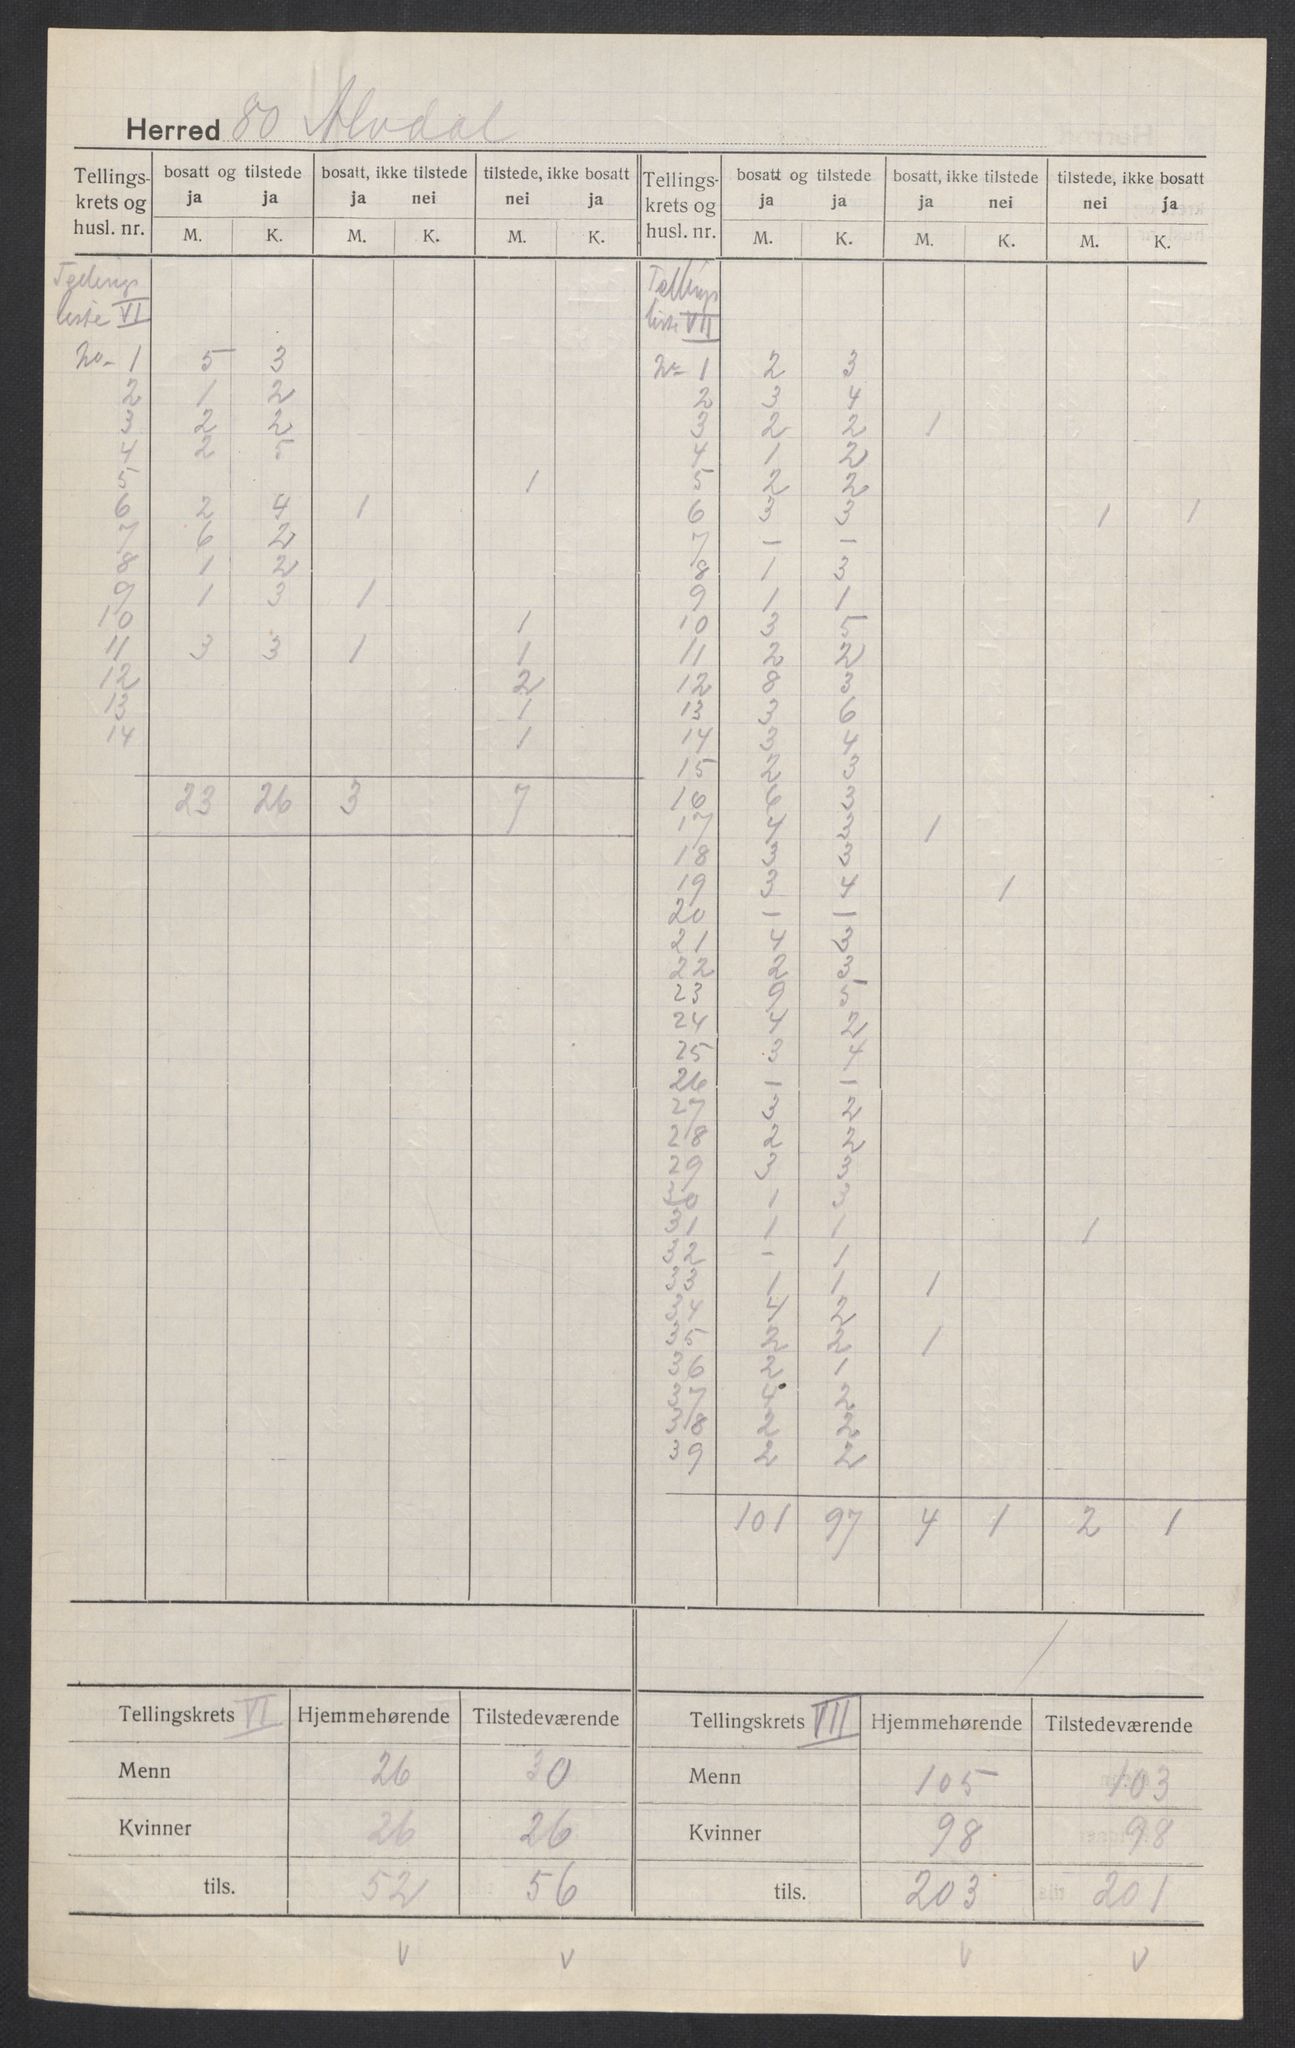 Herred 80 Alvdal
Tellings-krets og husl. nr. | bosatt og tilstede ja ja | bosatt, ikke tilstede ja nei | tilstede, ikke bosatt nei ja | Tellings-krets og husl. nr. | bosatt og tilstede ja ja | bosatt, ikke tilstede ja nei | tilstede, ikke bosatt nei ja
M. K. M. K. M. K. M. K. M. K. M. K.
Tellings liste VI
No 1 5 3
2 1 2
3 2 2
4 2 5
5 1
6 2 4 1
7 6 2
8 1 2
9 1 3 1
10 1
11 3 3 1 1
12 2
13 1
14 1
23 26 3 7
Tellings liste VII
No 1 2 3
2 3 4
3 2 2 1
4 1 2
5 2 2
6 3 3 1 1
7 1 1
8 1 3
9 1 1
10 3 5
11 2 2
12 8 3
13 3 6
14 3 4
15 2 3
16 6 3
17 4 3 1
18 3 3
19 3 4 1
20 1 1
21 4 3
22 2 3
23 9 5
24 4 2
25 3 4
26 1 1
27 3 2
28 2 2
29 3 3
30 1 3
31 1 1 1
32 - 1
33 1 1 1
34 4 2
35 2 2 1
36 2 1
37 4 2
38 2 2
39 2 2
101 97 4 1 2 1
Tellingskrets VI Hjemmehørende Tilstedeværende
Menn 26 30
Kvinner 26 26
tils. 52 56
V V
Tellingskrets VII Hjemmehørende Tilstedeværende
Menn 105 103
Kvinner 98 98
tils. 203 201
V V